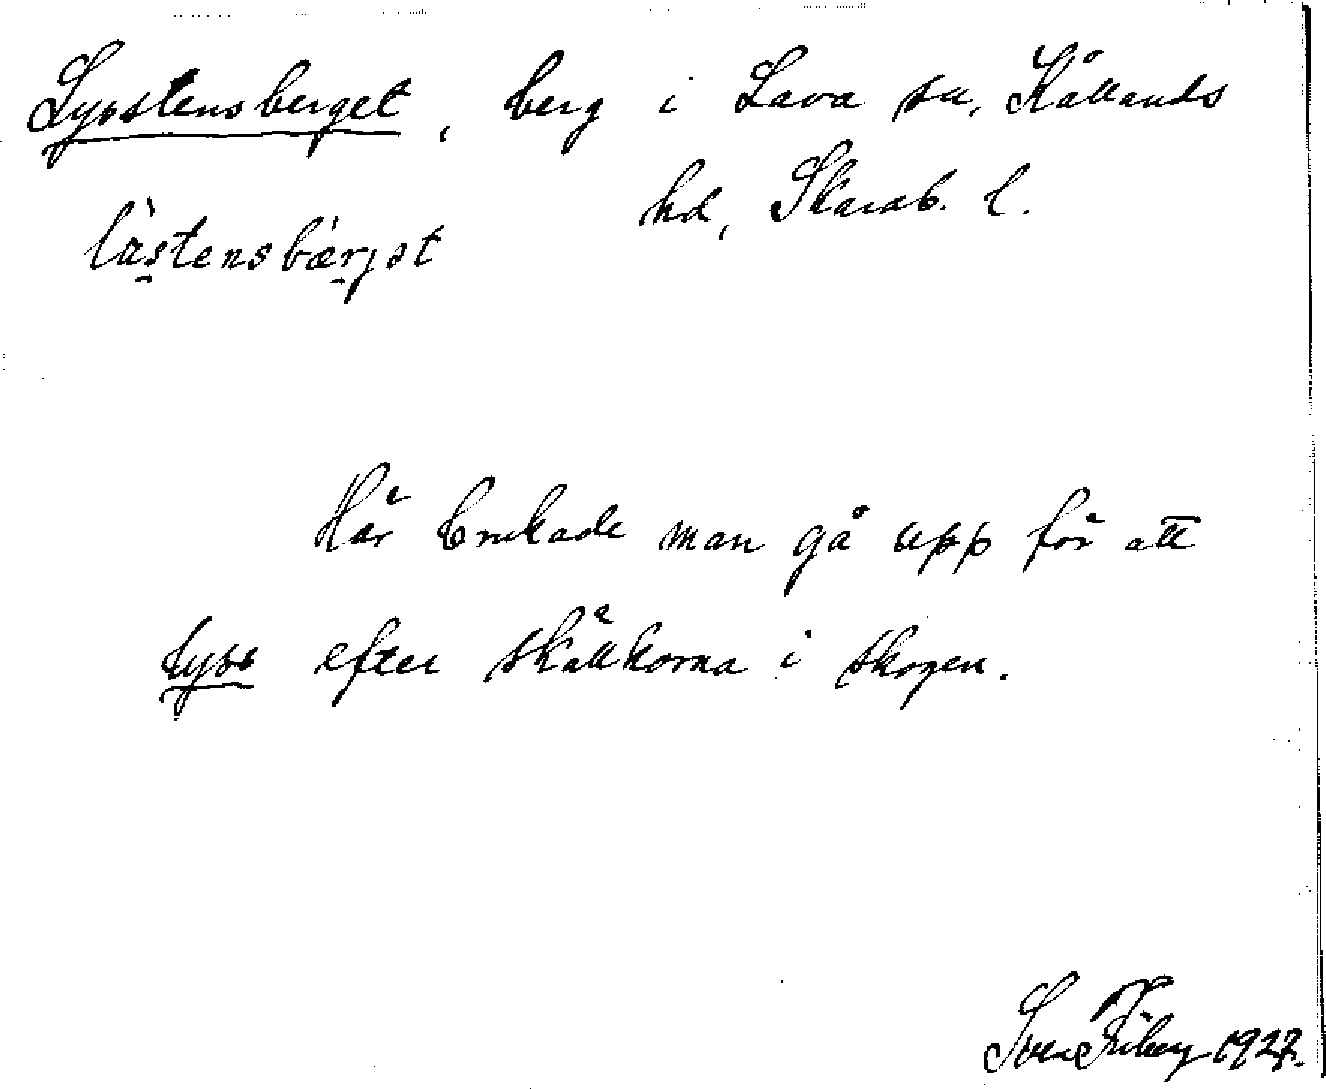 Lysstensberget, berg i Lava sn, Kållands
hd, Skarab. l.
Här brukade man gå upp för att
lyss efter skällkorna i skogen.
Sven Fribeg 1927.